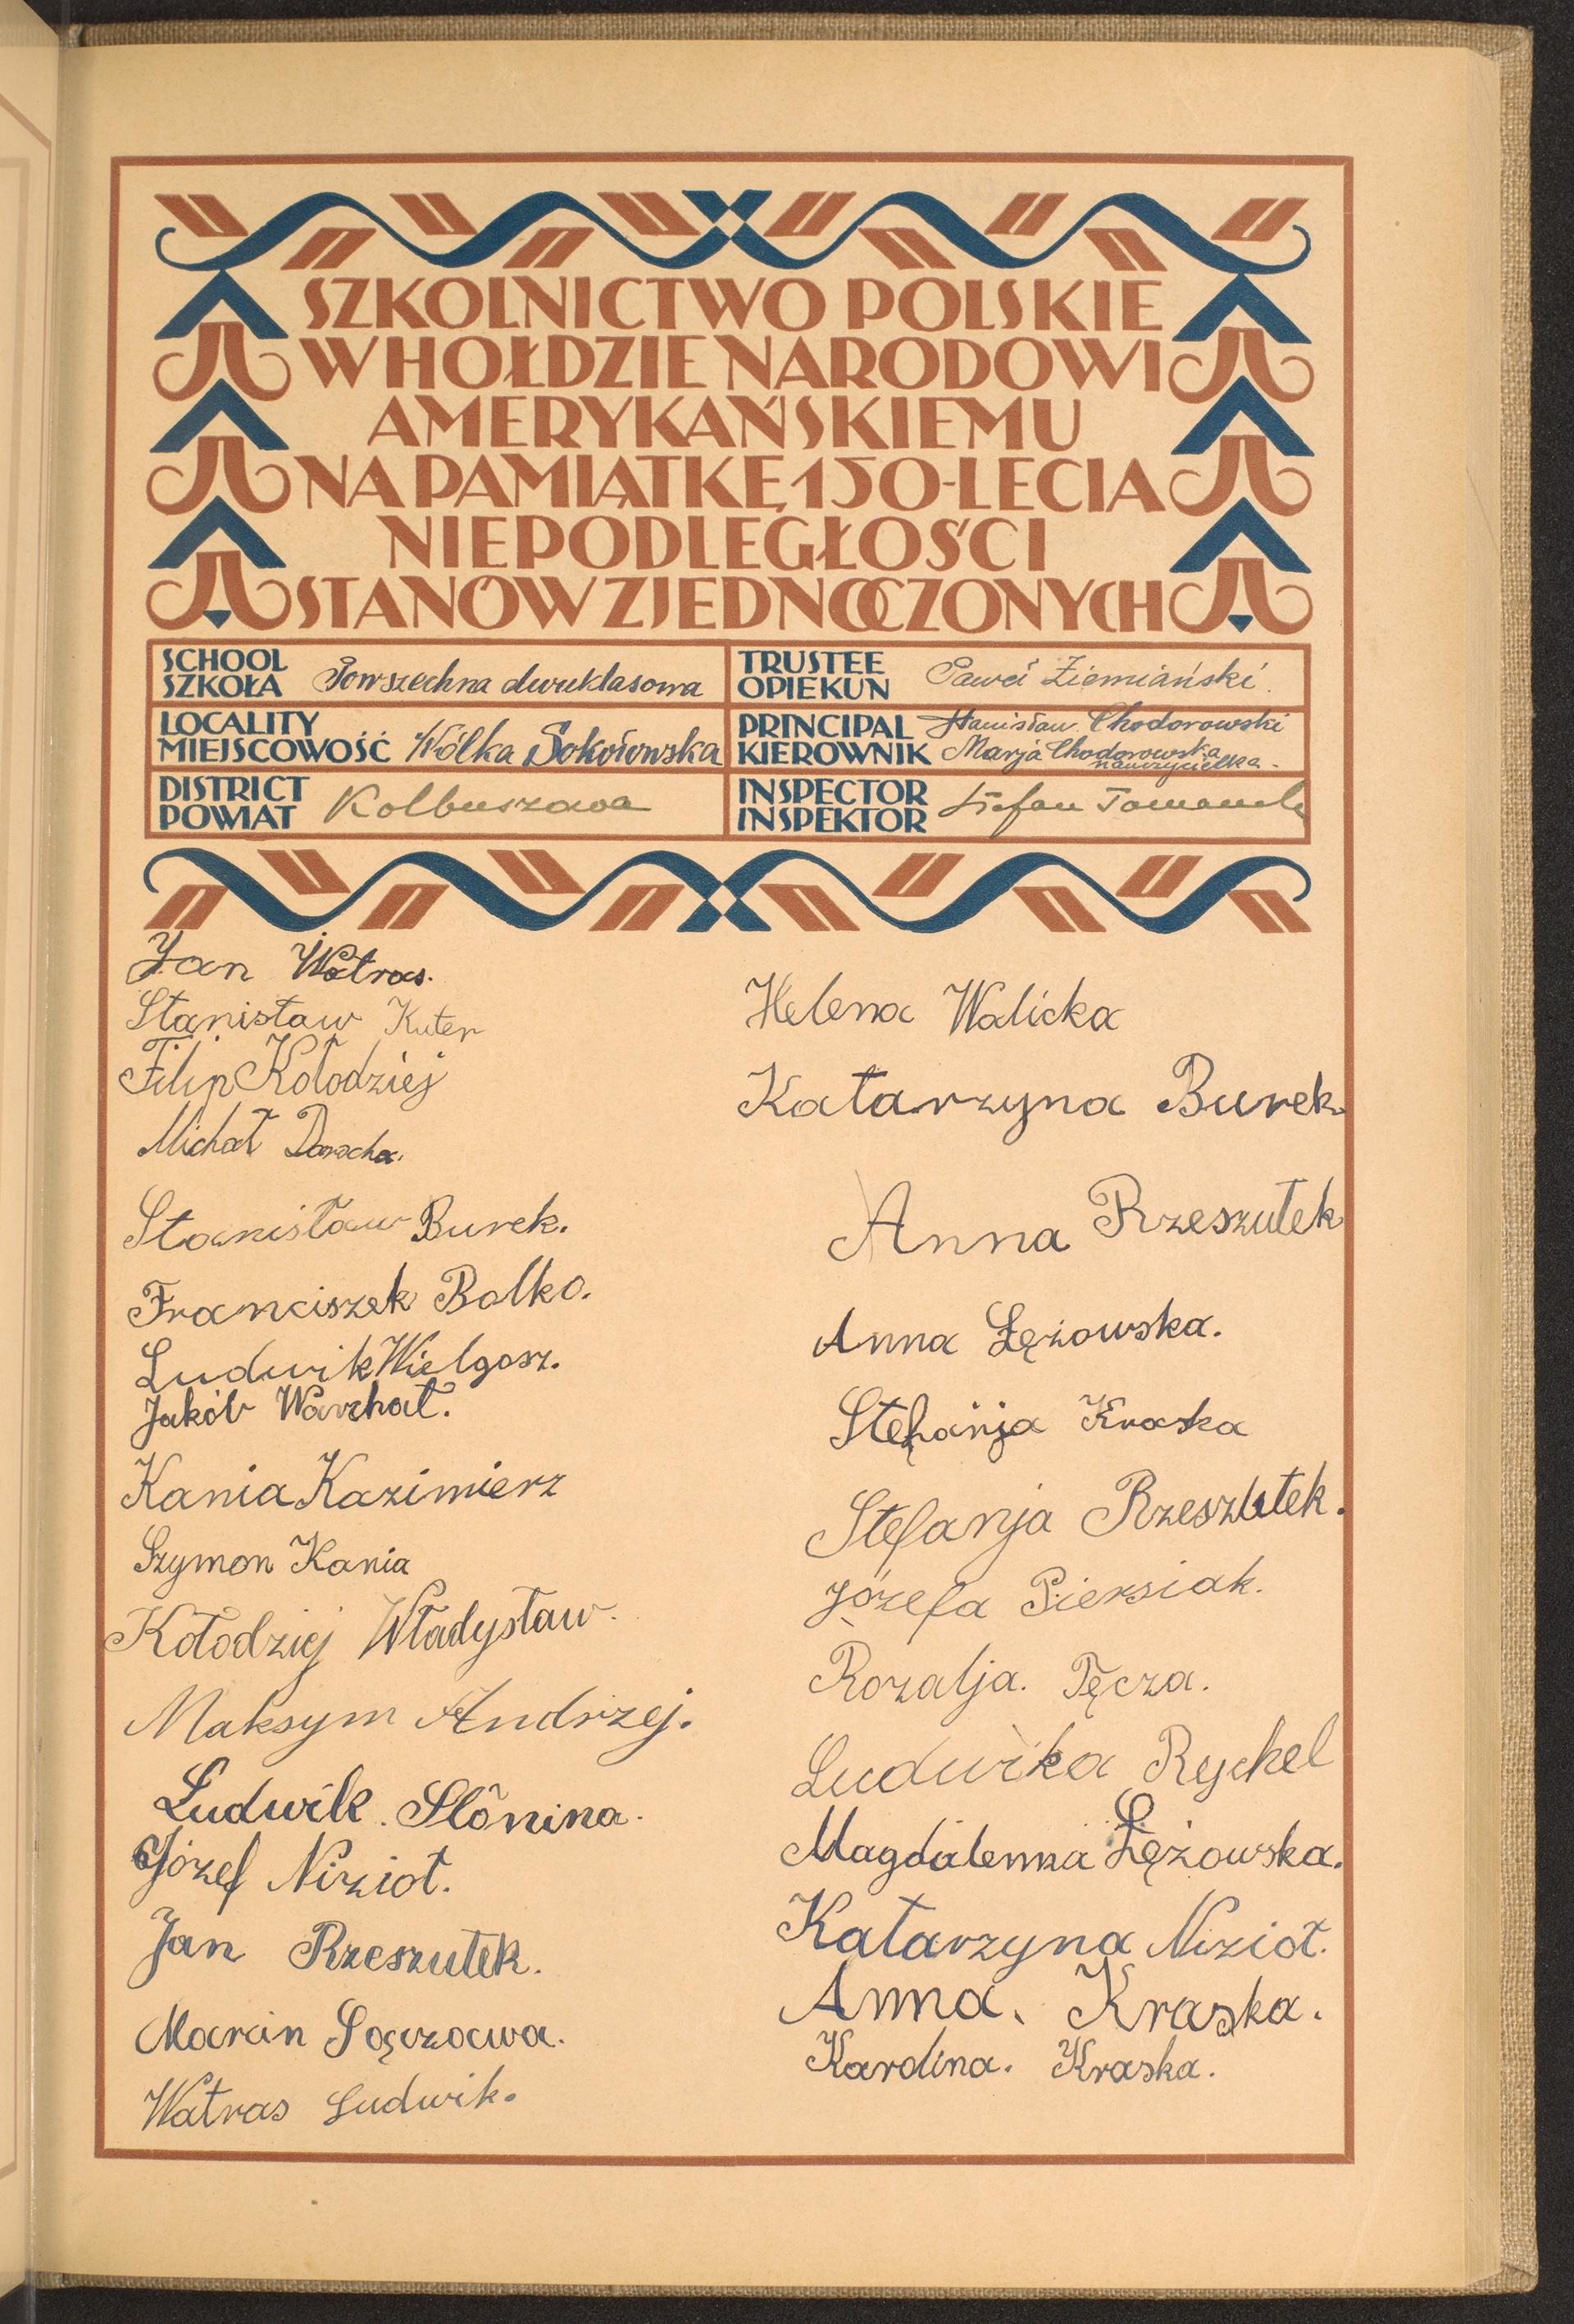 SZKOLNICTWO POLSKIE
W HOŁDZIE NARODOWI
AMERYKAŃSKIEMU
NA PAMIĄTKĘ 150-LECIA
NIEPODLEGŁOŚCI
STANÓW ZJEDNOCZONYCH
SCHOOL
SZKOŁA Powszechna dwuklasowa
TRUSTEE
OPIEKUN Paweł Ziemiański
LOCALITY
MIEJSCOWOŚĆ Wólka Sokołowska
PRINCIPAL Stanisław Chodorowski
KIEROWNIK Marja Chodorowska
nauczycielka.
DISTRICT
POWIAT Kolbuszowa
INSPECTOR
INSPEKTOR Stefan Tomanek
Jan Watras.
Stanisław Kuter
Filip Kołodziej
Michał
Stanisław Burek.
Franciszek Bolko.
Ludwik Wielgosz.
Jakób Warchał.
Kania Kazimierz
Szymon Kania
Kołodziej Władysław.
Maksym Andrzej.
Ludwik. Słonina.
Józef Nizioł.
Jan Rzeszutek.
Marcin
Watras Ludwik.
Helena Walicka
Katarzyna Burek
Anna Rzeszutek
Anna Łężowska.
Stefanja Kraska
Stefanja Rzeszutek.
Józefa Piersiak.
Rozalja. Tęcza.
Ludwika Rychel
Magdalenna Łężowska.
Katarzyna Nizioł.
Anna. Kraska.
Karolina. Kraska.